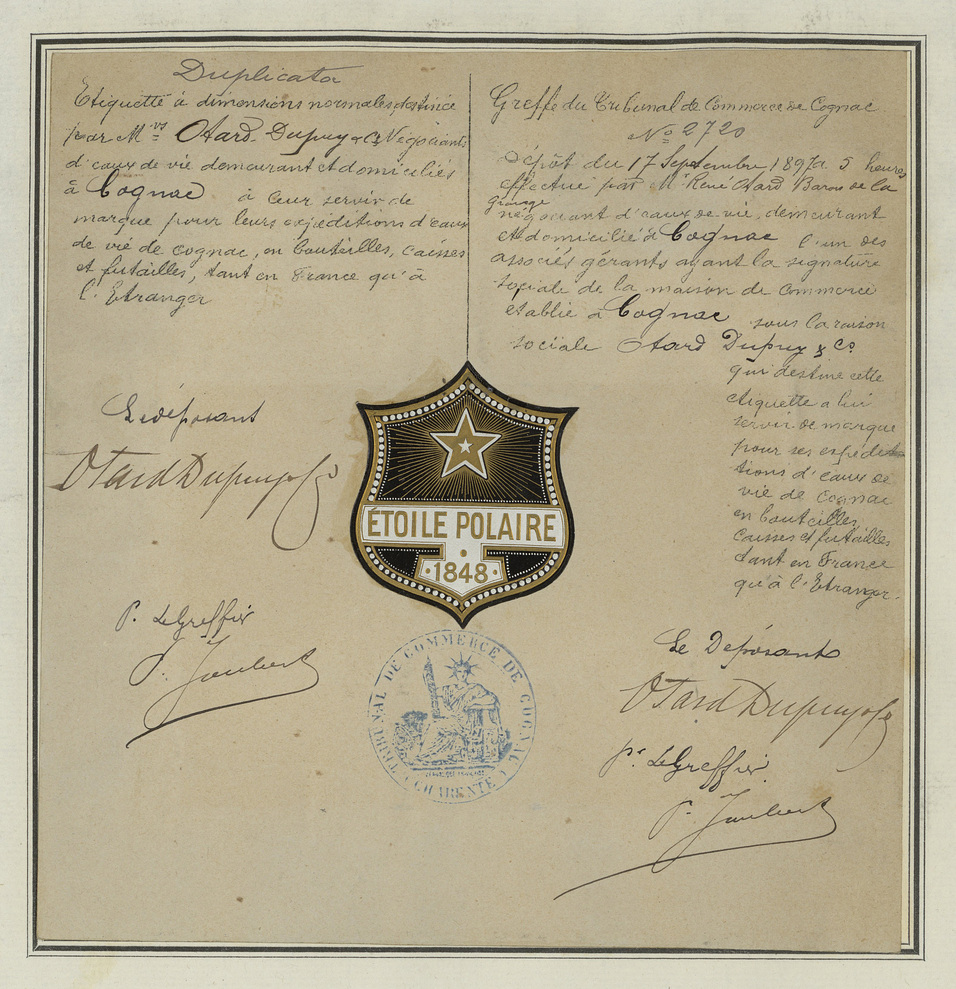 Duplicata
Etiquette à dimensions normales, destinée
par M.rs Otard Dupuy & Co Négociants
d'eaux de vie demeurant et domiciliés
à Cognac à leur servir de
marque pour leurs expéditions d'eaux
de vie de cognac, en bouteilles, caisses
et futailles, tant en France qu'à
l'Etranger
Le déposant
Otard Dupuy & Co
P. Le Greffier
P. Joubert
Greffe du Tribunal de Commerce de Cognac
No 2720
Dépôt du 17 Septembre 1897 à 5 heures
effectué par M. René Otard Baron de la
Grange
négociant d'eaux de vie, demeurant
et domicilié à Cognac l'un des
associés gérants ayant la signature
sociale de la maison de commerce
établie à Cognac sous la raison
sociale Otard Dupuy & Co
qui destine cette
étiquette à lui
servir de marque
pour ses expédi-
tions d'eaux de
vie de cognac
en bouteilles,
caisses et futailles
tant en France
qu'à l'Etranger.
Le Déposant
Otard Dupuy & Co
pr Le Greffier
P. Joubert
ÉTOILE POLAIRE
1848
TRIBUNAL DE COMMERCE DE COGNAC
CHARENTE